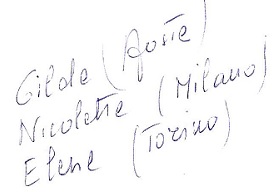 Gilda (Aosta)
Nicoletta (Milano)
Elena (Torino)